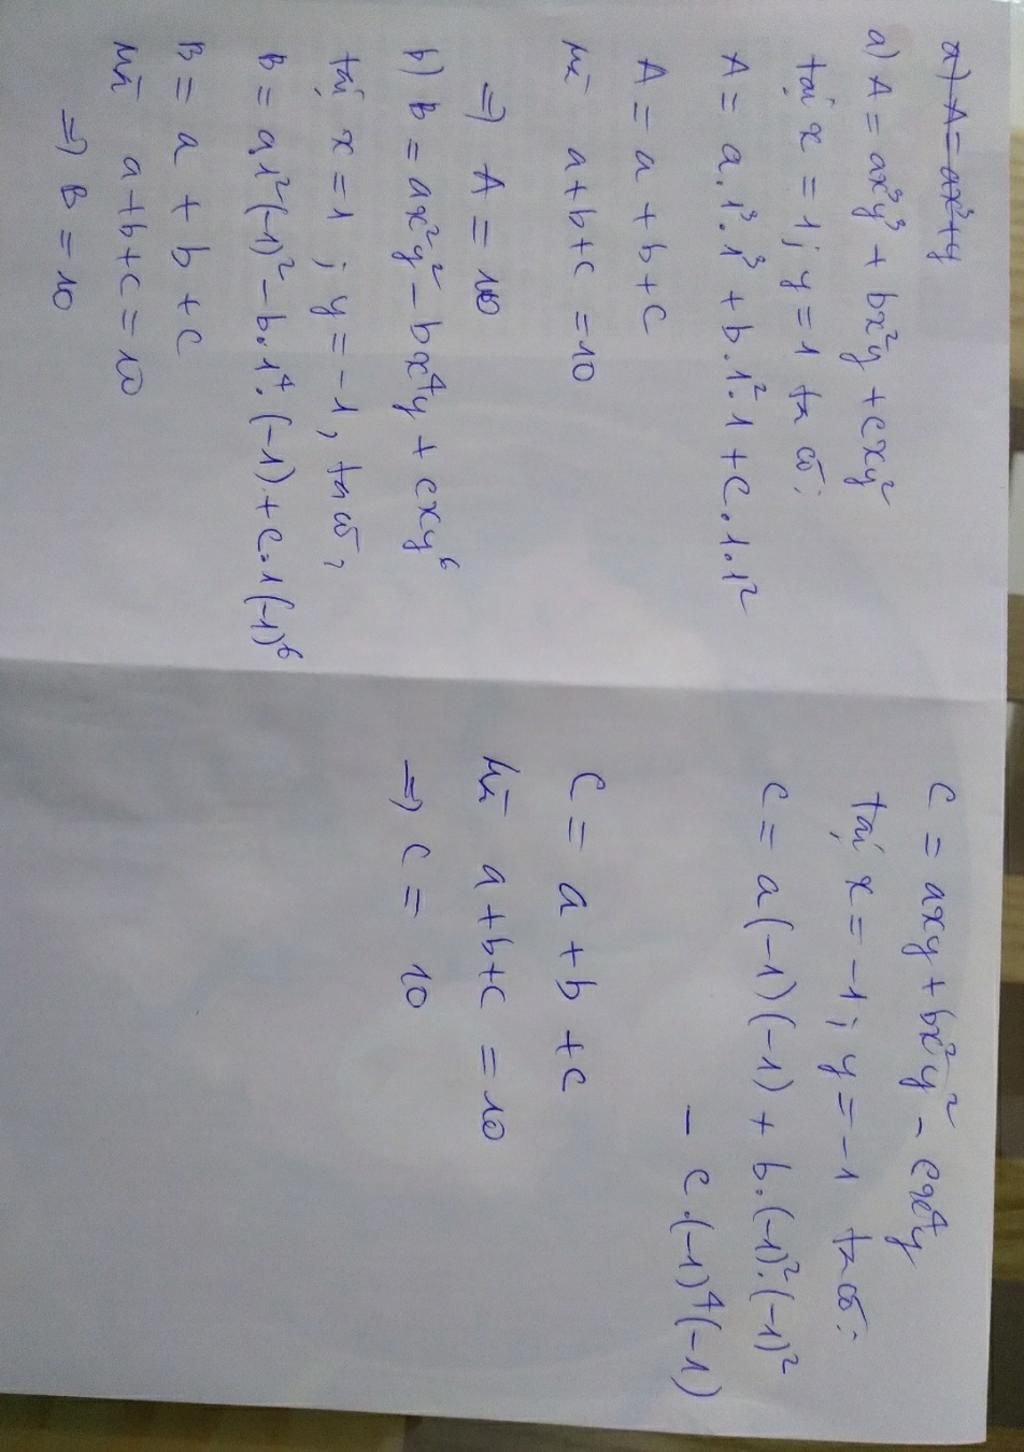 a) A = ax³ + y
a) A = ax³y³ + bx²y + cxy²
tại x = 1; y = 1 ta có:
A = a.1³.1³ + b.1².1 + c.1.1²
A = a + b + c
Mà a + b + c = 10
=> A = 10
b) B = ax²y² - bx⁴y + cxy⁶
tại x = 1; y = -1, ta có:
B = a1²(-1)² - b.1⁴.(-1) + c.1(-1)⁶
B = a + b + c
Mà a + b + c = 10
=> B = 10
C = axy + bx²y² - cx⁴y
tại x = -1; y = -1 ta có:
C = a(-1)(-1) + b.(-1)².(-1)²
- c.(-1)⁴(-1)
C = a + b + c
Mà a + b + c = 10
=> C = 10